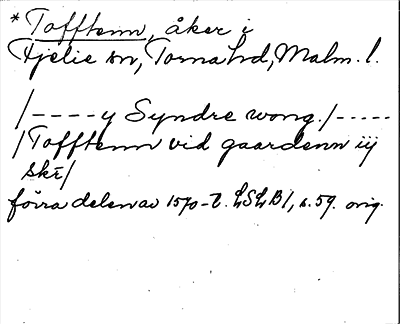 *Tofftenn, åker i
Fjelie sn, Torna hd, Malm. l.
/----y Syndre wong./-----
/Tofftenn vid gaardenn iij
skr/
förra delen av 1570-t. LSLB1, s. 59. orig.